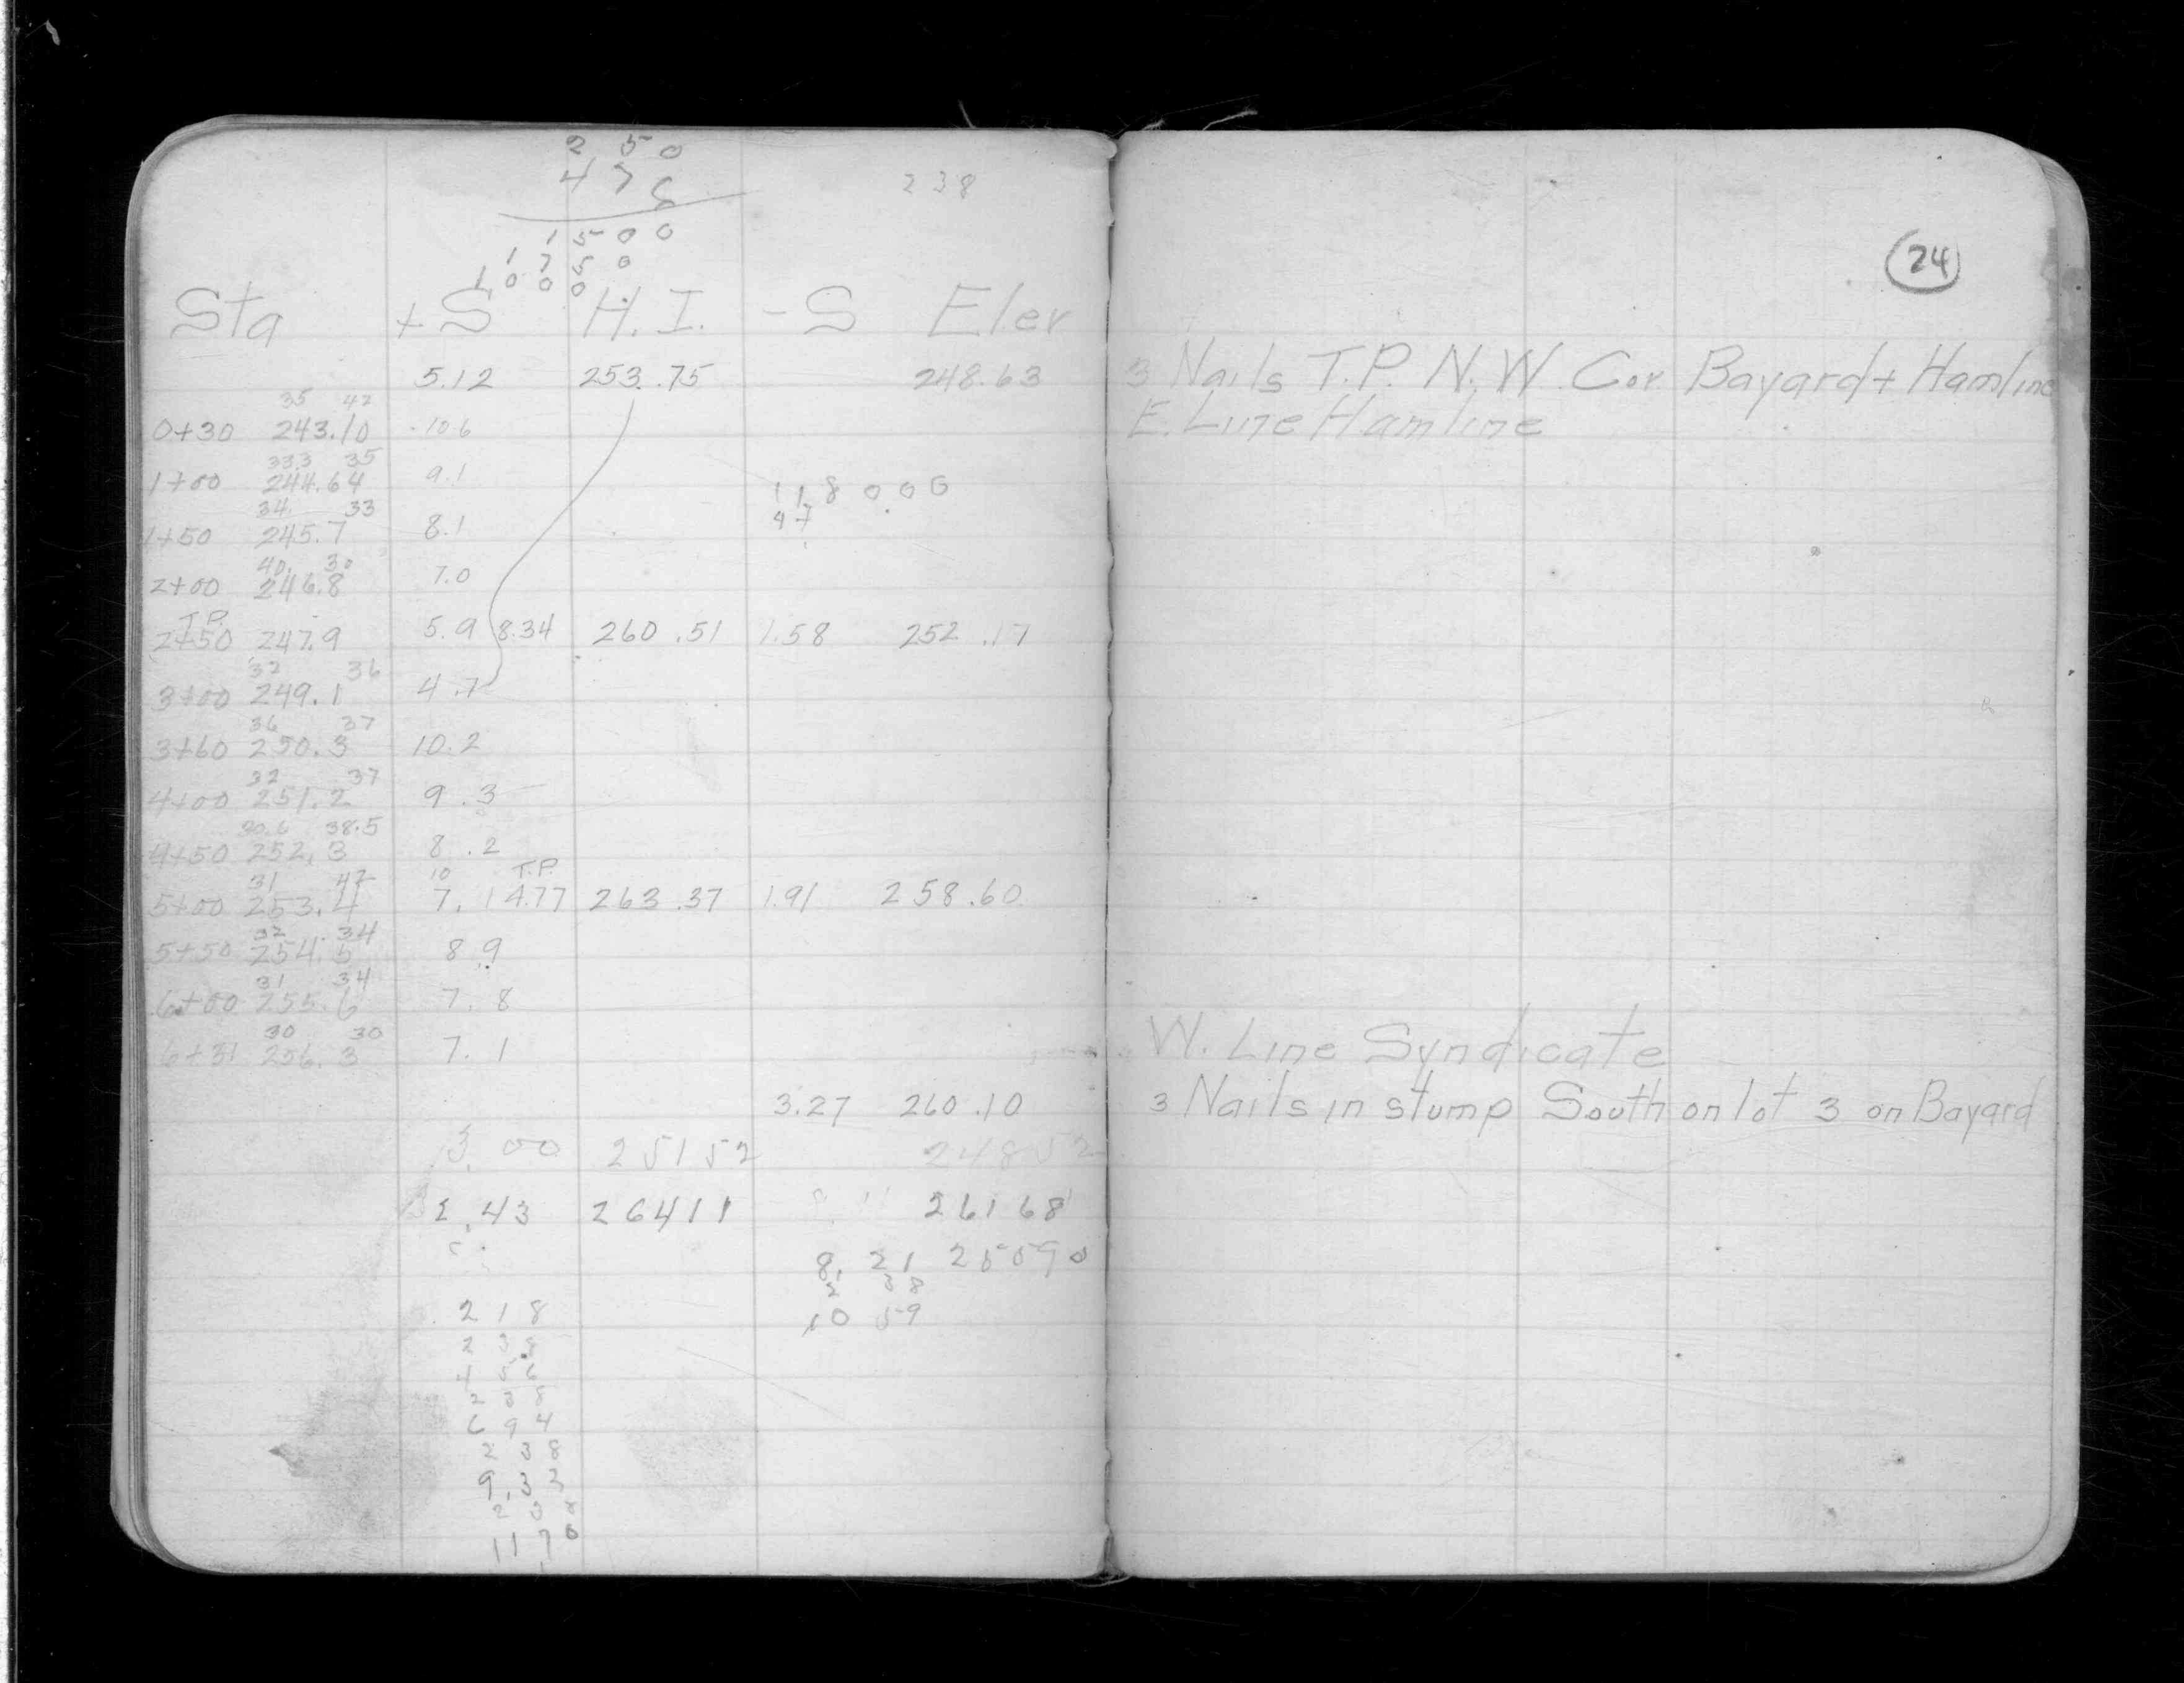 2 5 0
4 7 6
238
1 5 0 0
1 7 5 0
1 0 0 0
24
Sta +S H.I. -S Elev
5.12 253.75 248.63 3 Nails T.P. N.W. Cor Bayard + Hamline
35 42
0+30 243.10 10.6 E. Line Hamline
33.3 35
1+00 244.64 9.1
1 1 8 0 0 0
47
34 33
1+50 245.7 8.1
40. 30
2+00 246.8 7.0
T.P.
2+50 247.9 5.9 8.34 260.51 1.58 252.17
32 36
3+00 249.1 4.7
36 37
3+60 250.3 10.2
32 37
4+00 251.2 9.3
30.6 38.5
4+50 252.3 8.2
31 42 10 T.P.
5+00 253.4 7.1 4.77 263.37 1.91 258.60
32 34
5+50 254.5 8.9
31 34
6+00 255.6 7.8
30 30
6+31 256.3 7.1 W. Line Syndicate
3.27 260.10 3 Nails in stump South on lot 3 on Bayard
3.00 251 52 248 52
2.43 264 11 261 68
8.21 25590
2 38
10 59
2 1 8
2 3 8
4 5 6
2 3 8
6 9 4
2 3 8
9.3 2
2 3 8
11 7 0